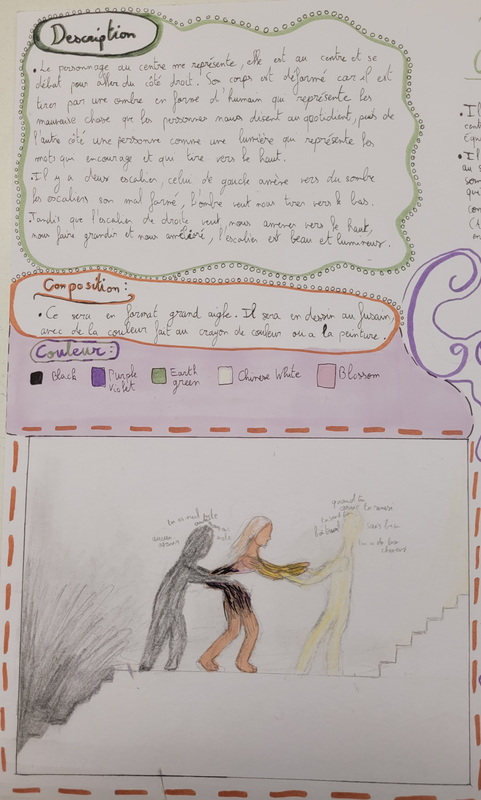 Description
• Le personnage au centre me représente, elle est au centre et se
débat pour aller du côté droit. Son corps est déformé car il est
tirer par une ombre en forme d'humain qui représente les
mauvaise chose que les personnes nous disent au quotidient, puis de
l'autre côté une personne comme une lumière qui représente les
mots que encourage et qui tire vers le haut.
• Il y a deux escalier, celui de gauche amène vers du sombre
les escaliers son mal formé, l'ombre veut nous tirer vers le bas.
Tandis que l'escalier de droite veut nous amener vers le haut,
nous faire grandir et nous améliéré, l'escalier est beau et lumineux.
Composition :
• Ce sera en format grand aigle. Il sera en dessin au fusain,
avec de la couleur fait au crayon de couleur ou a la peinture.
Couleur :
Black
Purple Violet
Earth green
Chinese White
Blossom